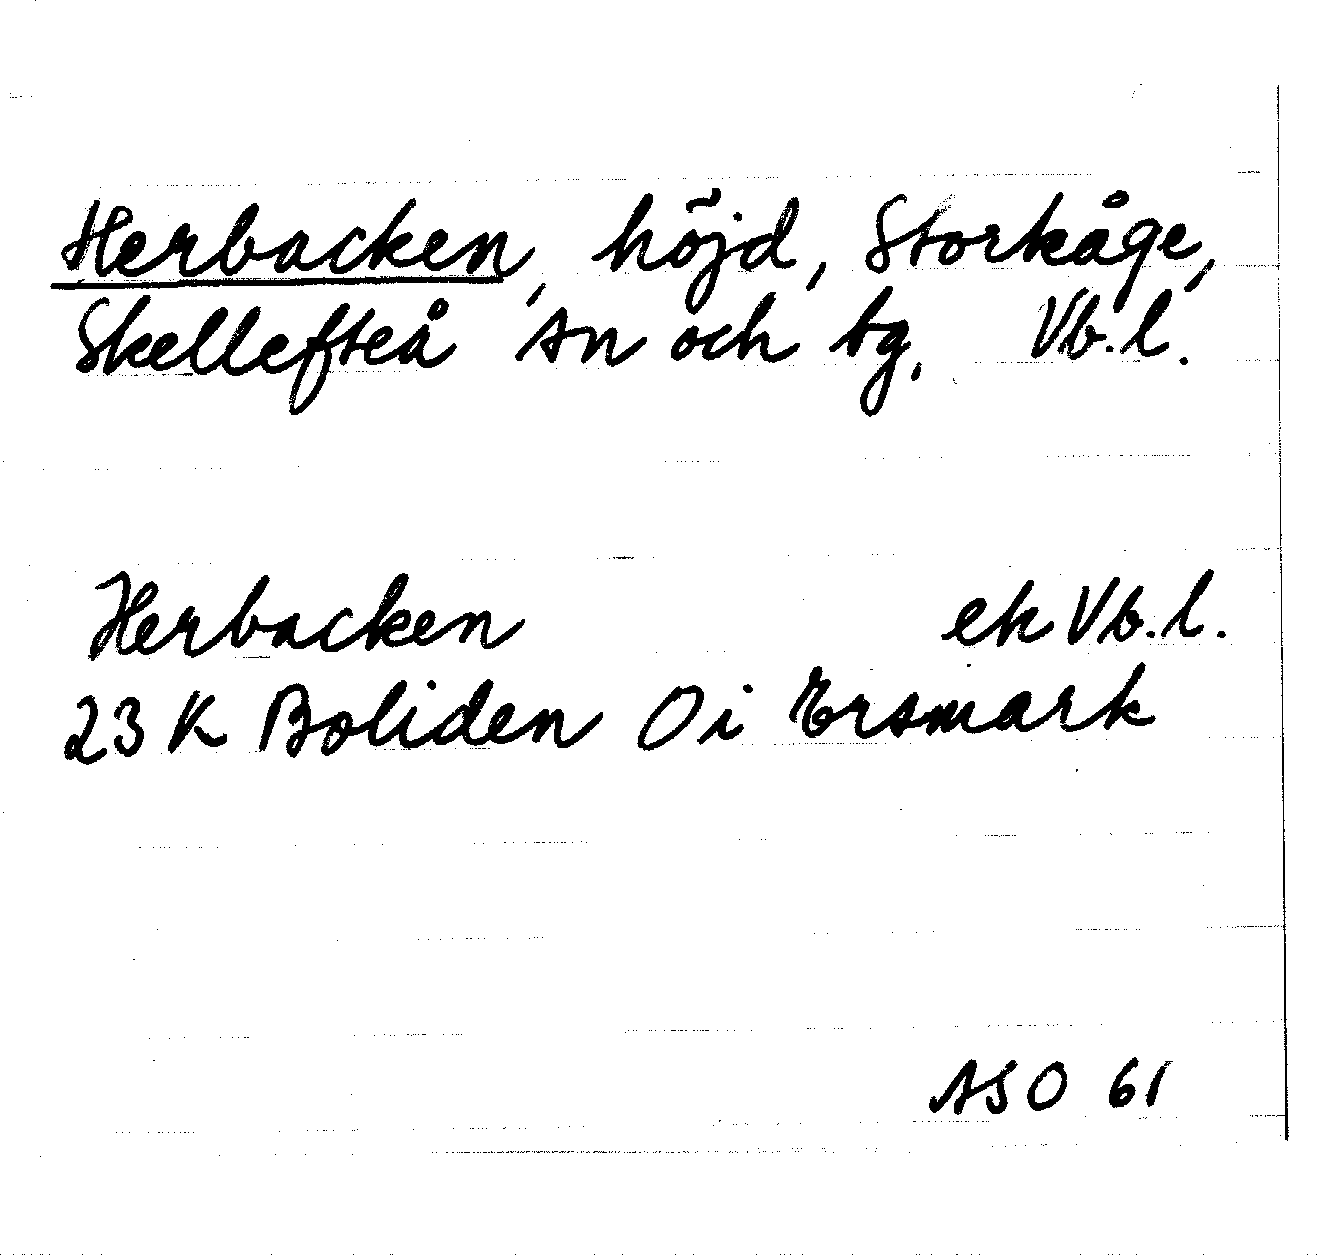 Herbacken, höjd, Storkåge,
Skellefteå sn och tg, Vb.l.
Herbacken ek Vb.l.
23 K Boliden Oi Ersmark
ASO 61